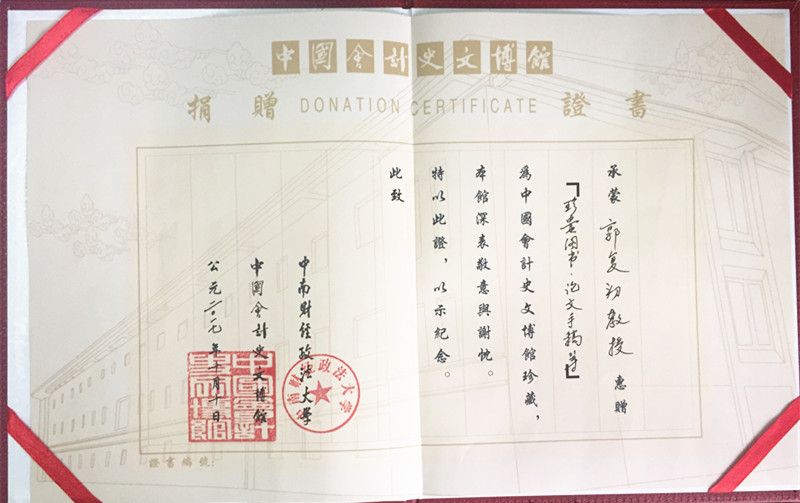 中國會計史文博館
捐贈 DONATION CERTIFICATE 證書
承蒙 郭复初教授 惠贈
「珍贵图书·论文手稿等」
為中國會計史文博館珍藏，
本館深表敬意與謝忱。
特以此證，以示紀念。
此致
中南财经政法大學
中國會計史文博館
公元二〇一七年十月十日
南财经政法大学
證書編號: